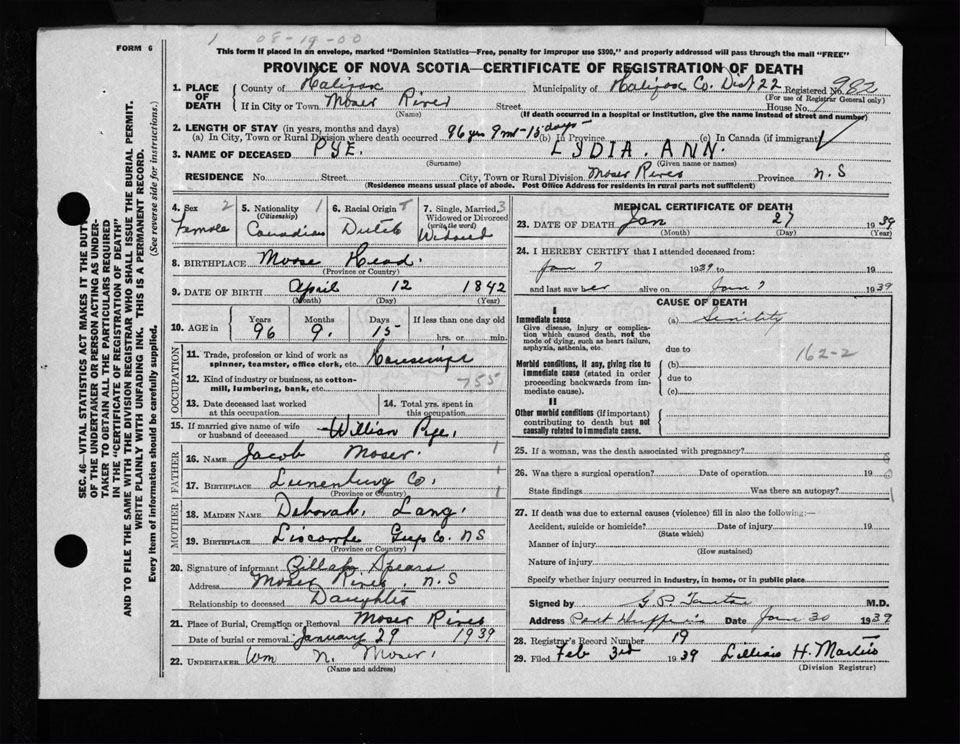 1 08-19-00
FORM 6
This form if placed in an envelope, marked "Dominion Statistics—Free, penalty for improper use $300," and properly addressed will pass through the mail "FREE"
PROVINCE OF NOVA SCOTIA—CERTIFICATE OF REGISTRATION OF DEATH
1. PLACE OF DEATH County of Halifax Municipality of Halifax Co. Dist 22 Registered No. 982
(For use of Registrar General only)
If in City or Town Moser River Street House No.
(Name) (If death occurred in a hospital or institution, give the name instead of street and number)
2. LENGTH OF STAY (in years, months and days)
(a) In City, Town or Rural Division where death occurred 96 yrs 9 mt-15 days (b) In Province (c) In Canada (if immigrant)
3. NAME OF DECEASED PYE. LYDIA. ANN.
(Surname) (Given name or names)
RESIDENCE No. Street. City, Town or Rural Division Moser River Province N.S
(Residence means usual place of abode. Post Office Address for residents in rural parts not sufficient)
4. Sex 2 Female
5. Nationality 1 (Citizenship) Canadian
6. Racial Origin Dutch
7. Single, Married, 3 Widowed or Divorced (write the word) Widowed
8. BIRTHPLACE Moose Head.
(Province or Country)
9. DATE OF BIRTH April 12 1842
(Month) (Day) (Year)
10. AGE in Years 96 Months 9. Days 15 If less than one day old hrs. or min.
OCCUPATION
11. Trade, profession or kind of work as spinner, teamster, office clerk, etc. Housewife
12. Kind of industry or business, as cotton-mill, lumbering, bank, etc. 755
13. Date deceased last worked at this occupation
14. Total yrs. spent in this occupation
15. If married give name of wife or husband of deceased William Pye,
FATHER
16. Name Jacob Moser. 1
17. Birthplace Lunenburg Co, 1
(Province or Country)
MOTHER
18. Maiden Name Deborah, Lang,
19. Birthplace Liscombe Guys Co. NS
(Province or Country)
20. Signature of informant Spears
Address Moser River, N.S
Relationship to deceased Daughter
21. Place of Burial, Cremation or Removal Moser River
Date of burial or removal January 29 1939
22. Undertaker Wm N. Moser,
(Name and address)
MEDICAL CERTIFICATE OF DEATH
23. DATE OF DEATH Jan 27 1939
(Month) (Day) (Year)
24. I HEREBY CERTIFY that I attended deceased from
Jan 7 1939 to 19
and last saw her alive on Jan 7 1939
CAUSE OF DEATH
I
Immediate cause (a) Senility
Give disease, injury or complication which caused death, not the mode of dying, such as heart failure, asphyxia, asthenia, etc.
due to 162-2
Morbid conditions, if any, giving rise to immediate cause (stated in order proceeding backwards from immediate cause).
(b)
due to
(c)
II
Other morbid conditions (if important) contributing to death but not causally related to immediate cause.
25. If a woman, was the death associated with pregnancy?
26. Was there a surgical operation? Date of operation 19
State findings Was there an autopsy?
27. If death was due to external causes (violence) fill in also the following:—
Accident, suicide or homicide? Date of injury 19
(State which)
Manner of injury
(How sustained)
Nature of injury
Specify whether injury occurred in industry, in home, or in public place
Signed by M.D.
Address Port Date Jan 30 1939
28. Registrar's Record Number 19
29. Filed Feb 3rd 1939 Lillias H. Martin
(Division Registrar)
SEC. 46—VITAL STATISTICS ACT MAKES IT THE DUTY
OF THE UNDERTAKER OR PERSON ACTING AS UNDER-
TAKER TO OBTAIN ALL THE PARTICULARS REQUIRED
IN THE "CERTIFICATE OF REGISTRATION OF DEATH"
AND TO FILE THE SAME WITH THE DIVISION REGISTRAR WHO SHALL ISSUE THE BURIAL PERMIT.
WRITE PLAINLY WITH UNFADING INK. THIS IS A PERMANENT RECORD.
Every item of information should be carefully supplied. (See reverse side for instructions.)